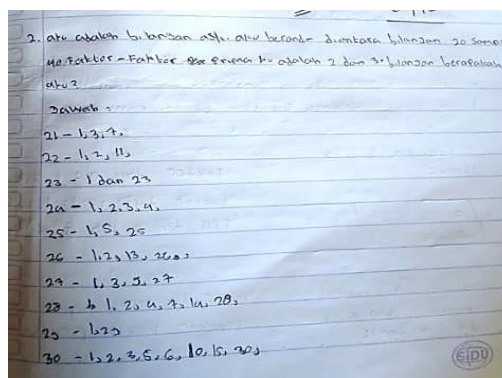 2. aku adalah bilangan asli. aku berada diantara bilangan 20 sampai
40 Faktor-Faktor prima ku adalah 2 dan 3. bilangan berapakah
aku?
Jawab :
21 - 1, 3, 7,
22 - 1, 2, 11,
23 - 1 dan 23
24 - 1, 2, 3, 4,
25 - 1, 5, 25
26 - 1, 2, 13, 26,
27 - 1, 3, 9, 27
28 - 1, 2, 4, 7, 14, 28,
29 - 1, 29
30 - 1, 2, 3, 5, 6, 10, 15, 30,
SIDU